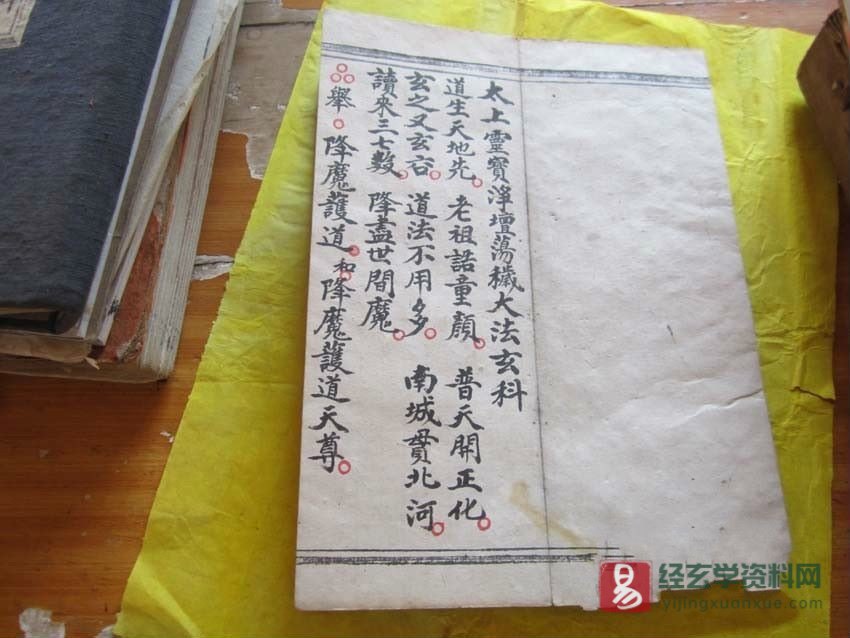 太上靈寳淨壇蕩穢大法玄科
道生天地先。老祖諾童顏。普天開正化。
玄之又玄谷。道法不用多。南城貫北河。
讀來三七數。降盡世間魔。
舉。降魔護道。和降魔護道天尊。
易
经玄学资料网
yijingxuonxue.com